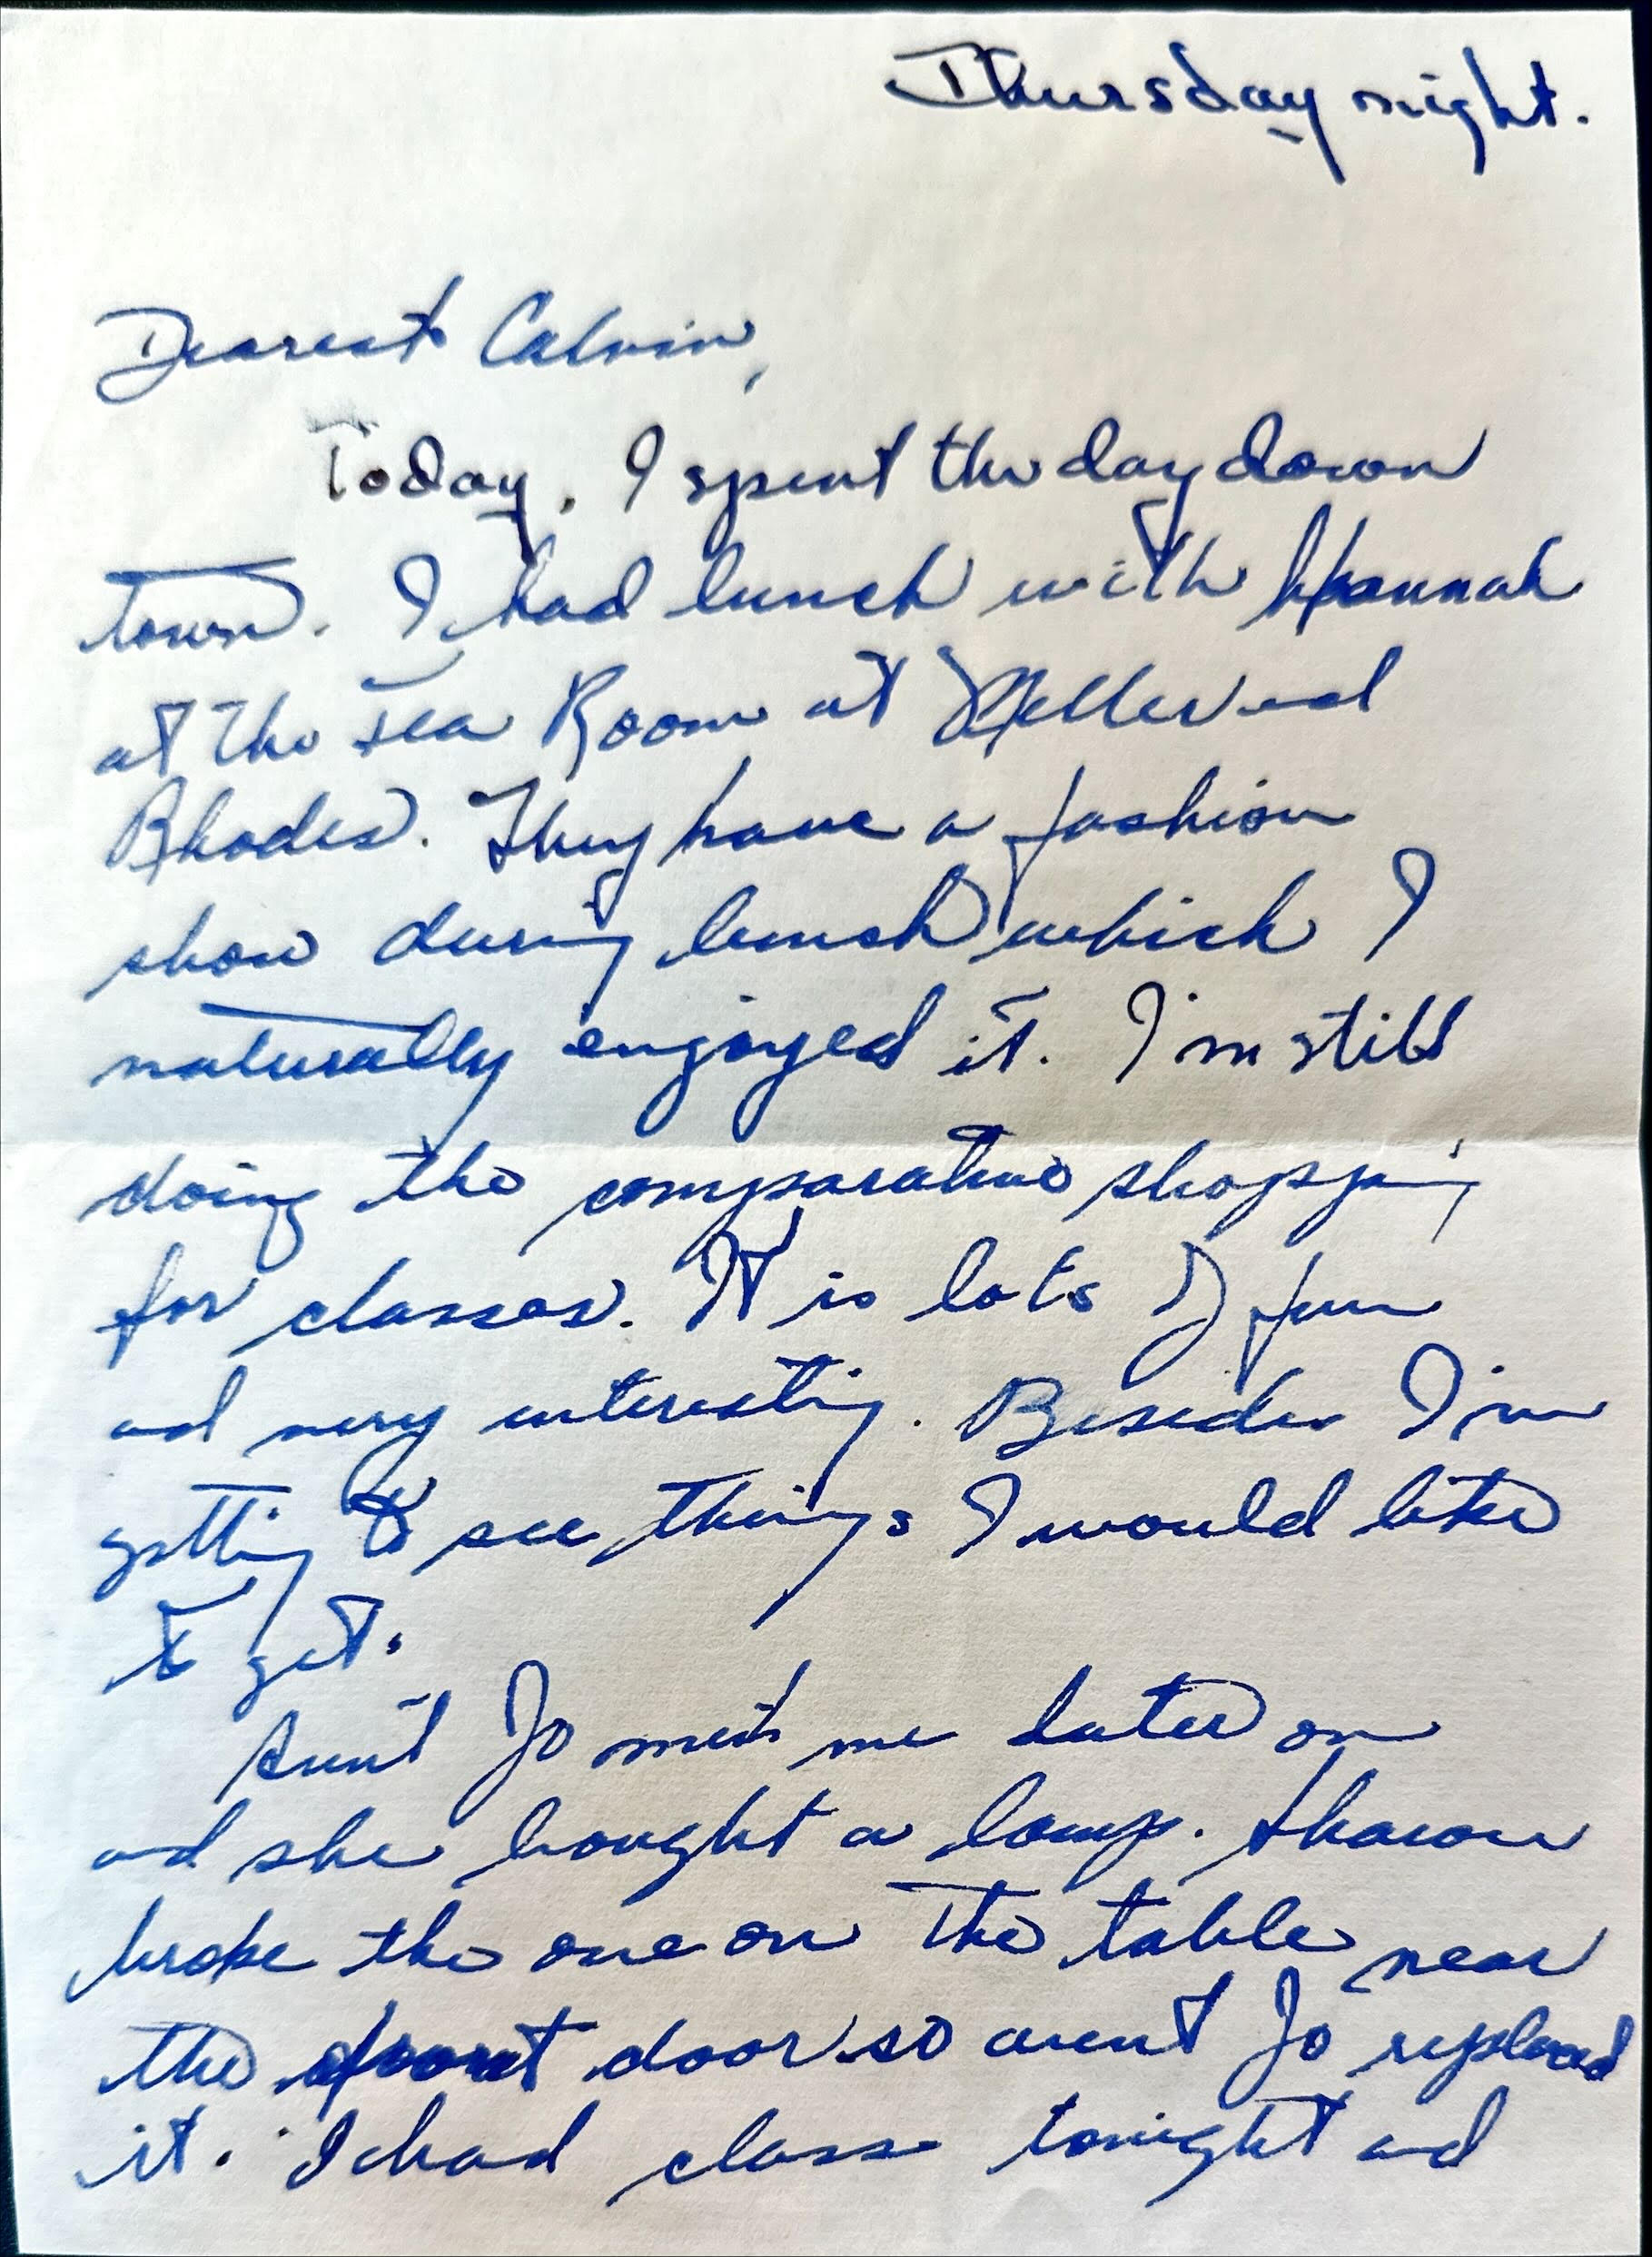 Thursday night.
Dearest Calvin,
Today. I spent the day down
town. I had lunch with Hannah
at the Tea Room at Miller and
Rhodes. They have a fashion
show during lunch which I
naturally enjoyed it. I'm still
doing the comparative shopping
for classes. It is lots of fun
and very interesting. Besides I'm
getting to see things I would like
to get.
Aunt Jo met me later on
and she bought a lamp. Sharon
broke the one on the table near
the front door so aunt Jo replaced
it. I had class tonight and